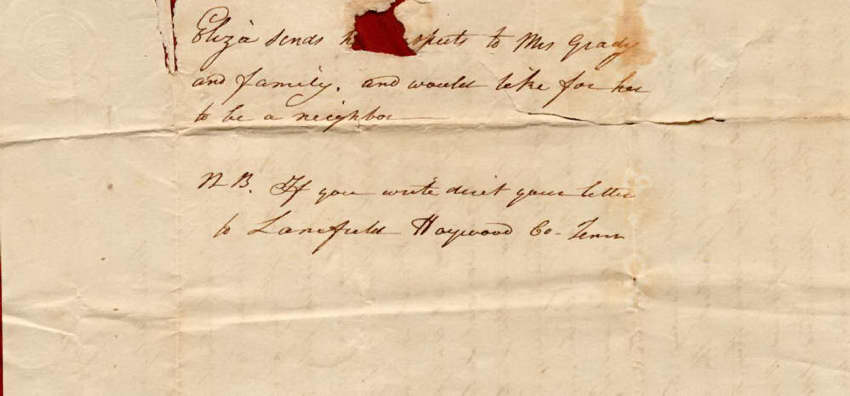 Eliza sends h spects to Mrs Grady
and family. and would like for her
to be a neighbor
N B. If you write direct your letter
to Lanefield Haywood Co - Tenn